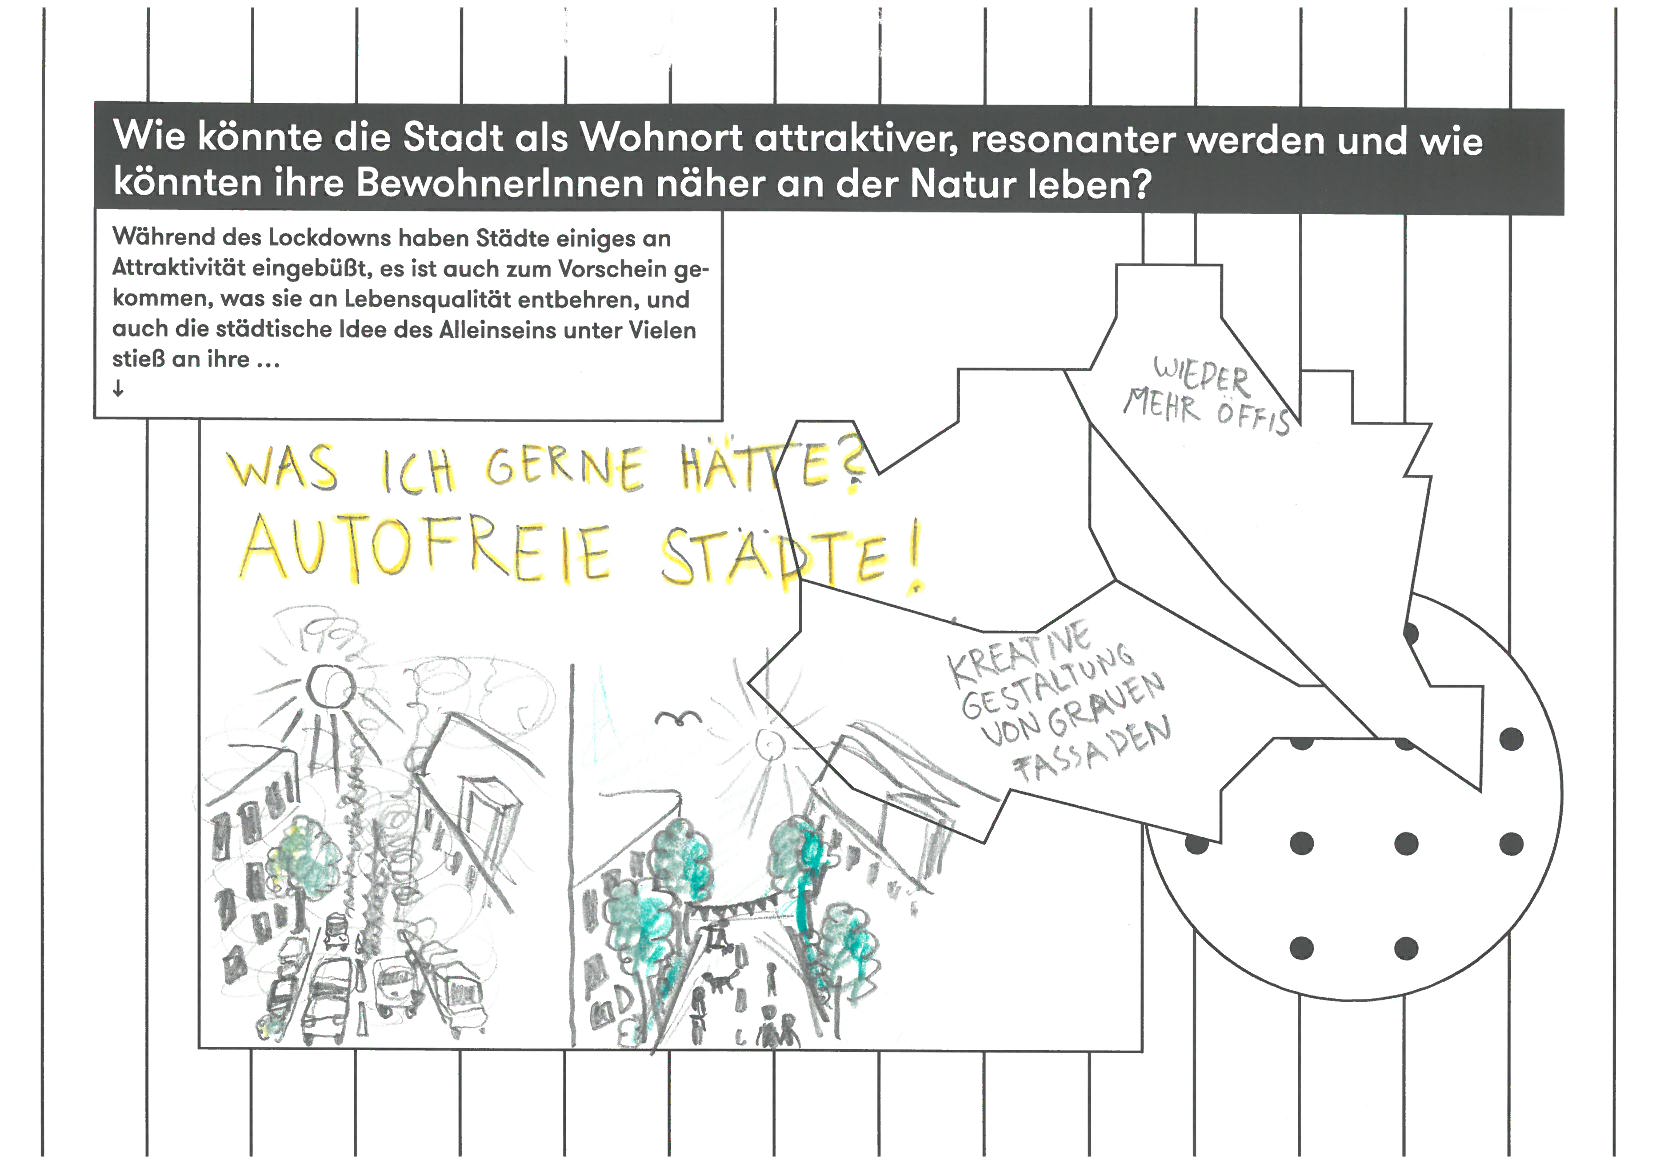 Wie könnte die Stadt als Wohnort attraktiver, resonanter werden und wie
könnten ihre BewohnerInnen näher an der Natur leben?
Während des Lockdowns haben Städte einiges an
Attraktivität eingebüßt, es ist auch zum Vorschein ge-
kommen, was sie an Lebensqualität entbehren, und
auch die städtische Idee des Alleinseins unter Vielen
stieß an ihre ...
↓
WIEDER
MEHR ÖFFIS
WAS ICH GERNE HÄTTE?
AUTOFREIE STÄDTE!
KREATIVE
GESTALTUNG
VON GRAUEN
FASSADEN